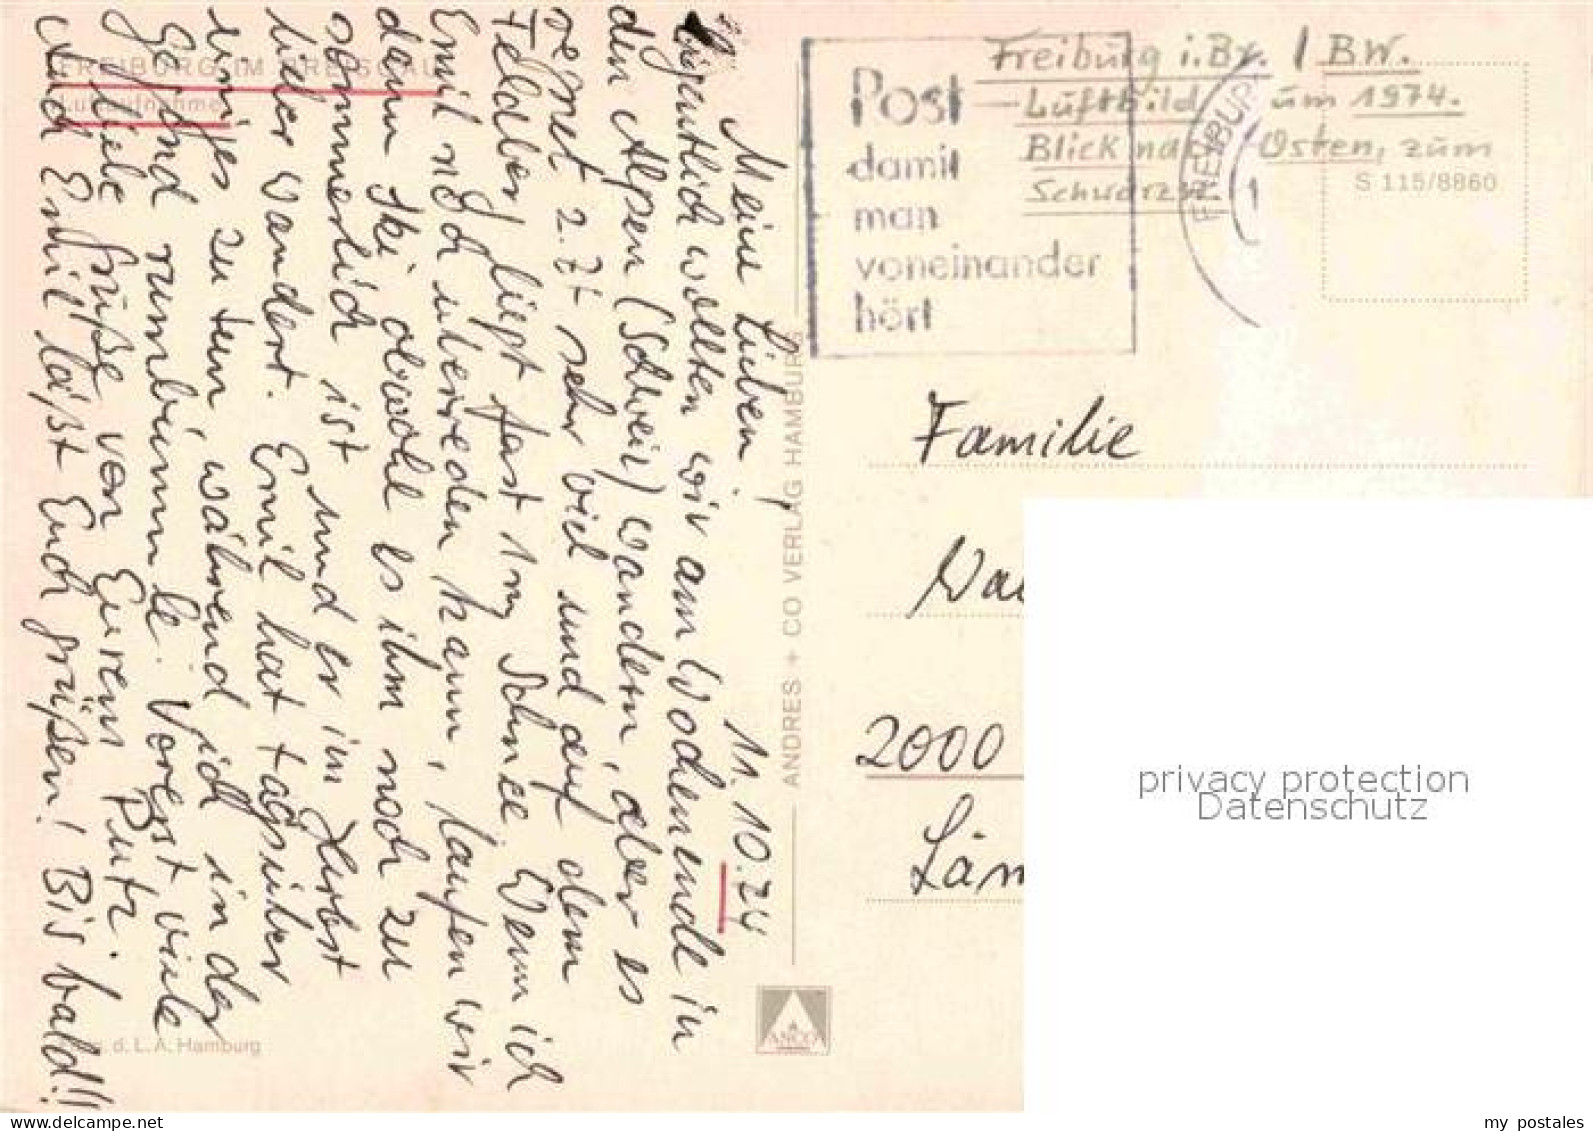 FREIBURG IM BREISGAU
Luftaufnahme
11.10.74
Meine Lieben,
eigentlich wollten wir am Wochenende in
den Alpen (Schweiz) wandern, aber es
regnet z.Zt sehr viel und auf dem
Feldberg liegt fast 1m Schnee. Wenn ich
Emil noch überreden kann, laufen wir
dann Ski obwohl es ihm noch zu
sommerlich ist und er im Herbst
lieber wandert. Emil hat tagsüber
einiges zu tun, während ich in der
Gegend rumbummle. Vorerst viele
liebe Grüße von Eurem Putz.
Auch Emil läßt Euch grüßen! Bis bald!!
d. L. A. Hamburg
ANDRES + CO VERLAG HAMBURG
ANCO
Post
damit
man
voneinander
hört
Freiburg i.Br. / BW.
Luftbild um 1974.
Blick na Osten, zum
Schwarzw.
FREIBUR
1
S 115/8860
Familie
Wal
2000
Läm
privacy protection
Datenschutz
www.delcampe.net
my_postales